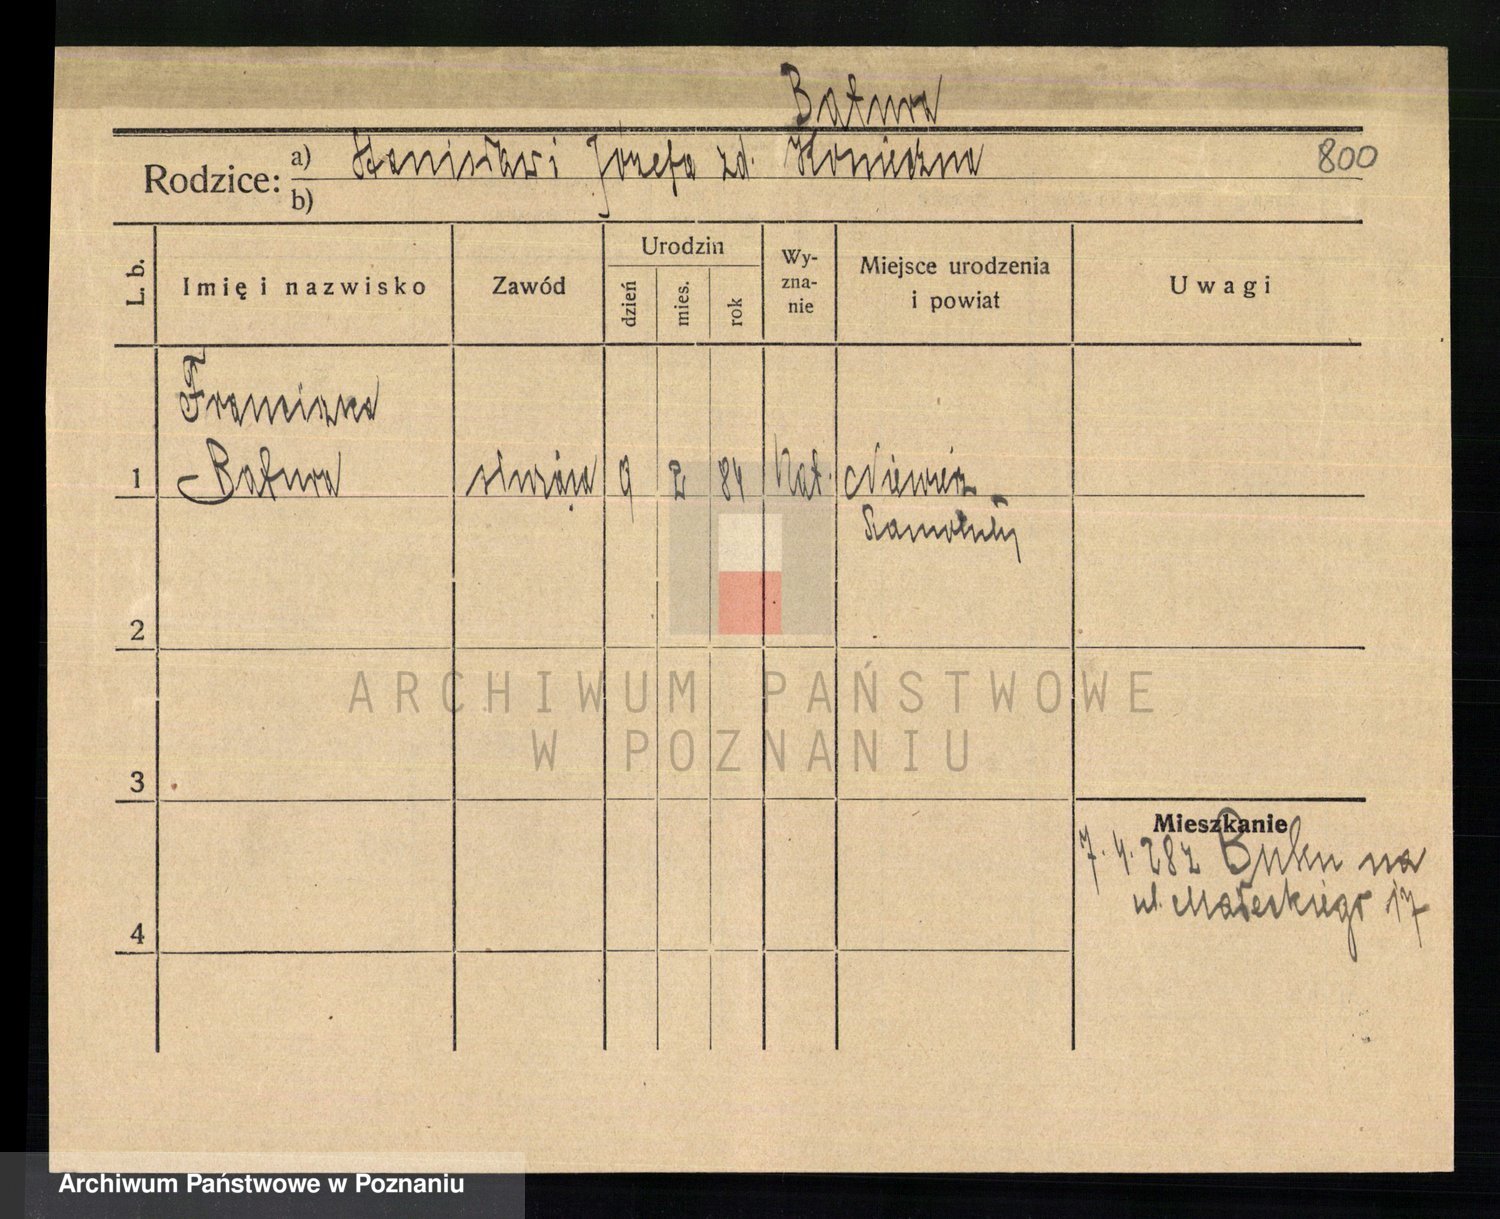 Batura
Rodzice: a) Stanisław i Józefa zd. Konieczna
b)
800
L. b.
Imię i nazwisko
Zawód
Urodzin
dzień
mies.
rok
Wy-
zna-
nie
Miejsce urodzenia
i powiat
Uwagi
Franciszka
1 Batura służąca 9 2 84 kat. Niewierz
Szamotuły
2
3
4
Mieszkanie
7.4.28 z Buku na
ul. Małeckiego 17
ARCHIWUM PAŃSTWOWE
W POZNANIU
Archiwum Państwowe w Poznaniu